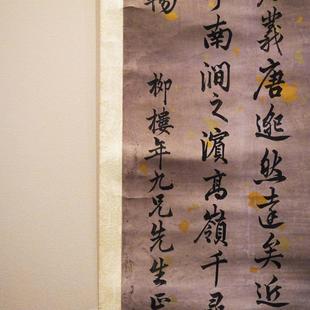 羲唐邈然遠矣近
南澗之濱高嶺千尋
暢
柳樓年九兄先生正